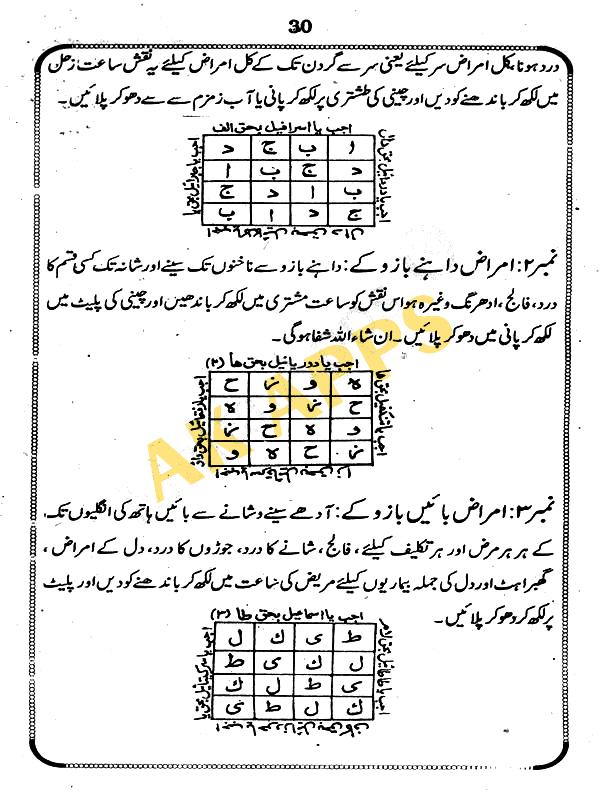 30
درد ہونا، کل امراض سر کیلئے یعنی سر سے گردن تک کے کل امراض کیلئے یہ نقش ساعت زحل
میں لکھ کر باندھنے کو دیں اور چینی کی طشتری پر لکھ کر پانی یا آب زمزم سے سے دھو کر پلائیں۔
اجب یا اسرافیل بحق الف
ا ب ج د
د ج ب ا
ب ا د ج
ج د ا ب
نمبر۲: امراض داہنے بازو کے: داہنے بازو سے ناخنوں تک سینے اور شانہ تک کسی قسم کا
درد، فالج، ادھرنگ وغیرہ ہو اس نقش کو ساعت مشتری میں لکھ کر باندھیں اور چینی کی پلیٹ میں
لکھ کر پانی میں دھو کر پلائیں۔ ان شاء اللہ شفا ہوگی۔
اجب یا دوریائیل بحق ھا (۲)
ہ و ز ح
ح ز و ہ
و ہ ح ز
ز ح ہ و
نمبر۳: امراض بائیں بازو کے: آدھے سینے و شانے سے بائیں ہاتھ کی انگلیوں تک
کے ہر ہر مرض اور ہر تکلیف کیلئے، فالج، شانے کا درد، جوڑوں کا درد، دل کے امراض،
گھبراہٹ اور دل کی جملہ بیماریوں کیلئے مریض کی ساعت میں لکھ کر باندھنے کو دیں اور پلیٹ
پر لکھ کر دھو کر پلائیں۔
اجب یا اسماعیل بحق طا (۳)
ط ی ک ل
ل ک ی ط
ی ط ل ک
ک ل ط ی
AK APPS